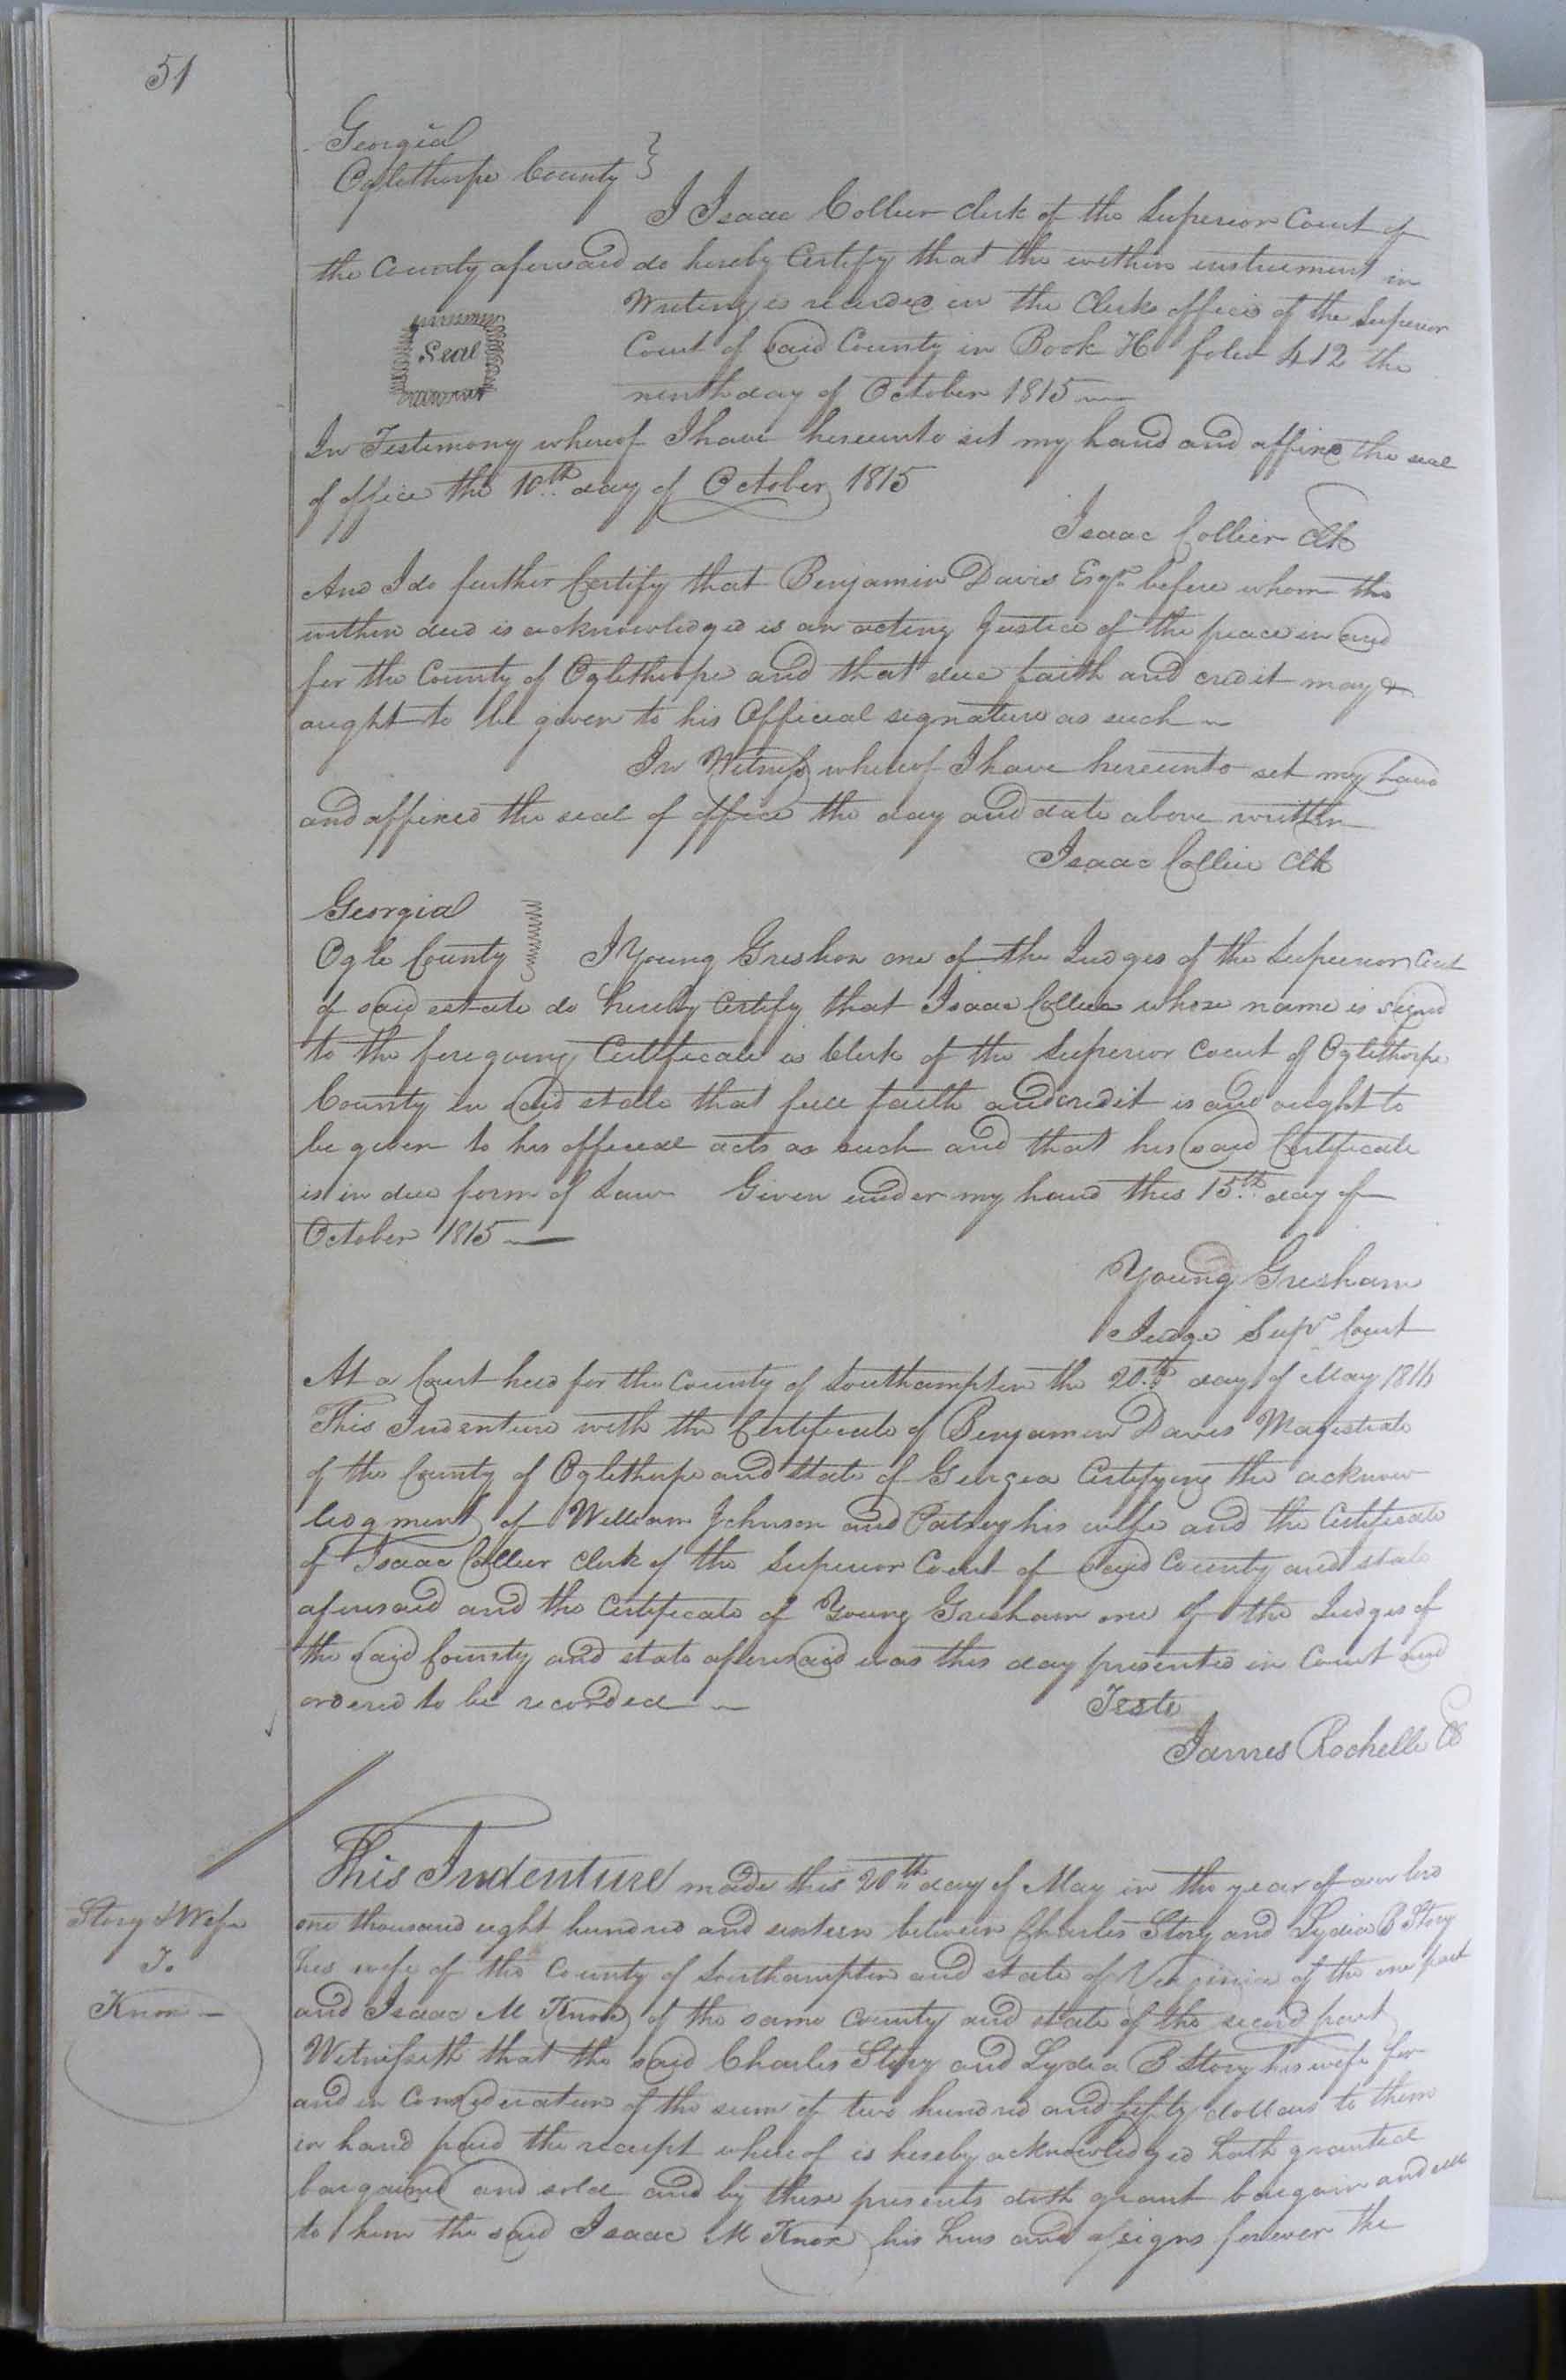 51
Georgia
Oglethorpe County }
I Isaac Collier Clerk of the Superior Court of
the County aforesaid do hereby Certify that the within instrument in
Writing is recorded in the Clerks office of the Superior
Seal
Court of said County in Book H folio 412 the
ninth day of October 1815
In Testimony whereof I have hereunto set my hand and affixed the seal
of office the 10th day of October 1815
Isaac Collier Clk
And I do further Certify that Benjamin Davis Esqr. before whom the
within deed is acknowledged is an acting Justice of the peace in and
for the County of Oglethorpe and that due faith and credit may &
aught to be given to his Official signature as such
In Witness whereof I have hereunto set my hand
and affixed the seal of office the day and date above written
Isaac Collier Clk
Georgia
Ogle County } I Young Greshom one of the Judges of the Superior Court
of said estate do hereby Certify that Isaac Collier whose name is signed
to the foregoing Certificate is Clerk of the Superior Court of Oglethorpe
County in said state that full faith and credit is and aught to
be given to his official acts as such and that his said Certificate
is in due form of Law Given under my hand this 15th day of
October 1815
Young Gresham
Judge Supr. Court
At a Court held for the County of Southampton the 20th day of May 1816
This Indenture with the Certificate of Benjamin Davis Magistrate
of the County of Oglethorpe and state of Georgia Certifying the acknow
ledgment of William Johnson and Patsey his wife and the Certificate
of Isaac Collier Clerk of the Superior Court of said County and state
aforesaid and the Certificate of Young Gresham one of the Judges of
the said County and state aforesaid was this day presented in Court and
ordered to be recorded
Teste
James Rochelle Cl
This Indenture made this 20th day of May in the year of our Lord
Story & Wife
To
Knox
one thousand eight hundred and sixteen between Charles Story and Lydia B Story
his wife of the County of Southampton and state of Virginia of the one part
and Isaac M Knox of the same County and state of the second part
Witnesseth that the said Charles Story and Lydia B Story his wife for
and in Consideration of the sum of two hundred and fifty dollars to them
in hand paid the receipt whereof is hereby acknowledged hath granted
bargained and sold and by these presents doth grant bargain and sell
to him the said Isaac M Knox his heirs and assigns forever the